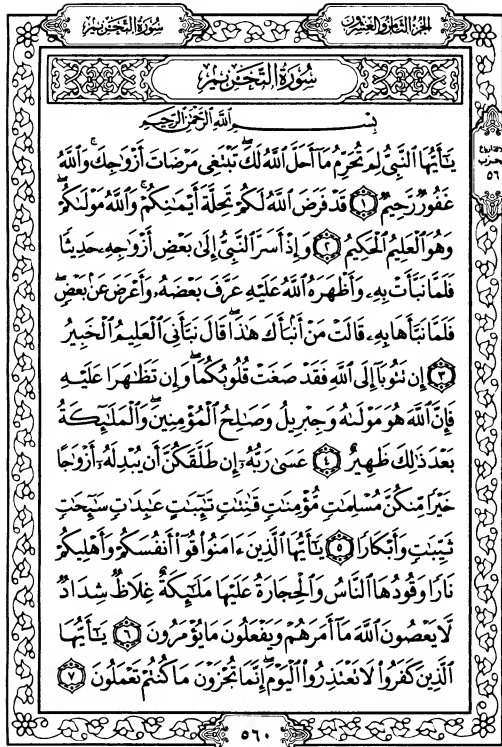 الجزء الثامن والعشرون
سورة التحريم
سُورَةُ التَّحْرِيمِ
بِسْمِ اللَّهِ الرَّحْمَٰنِ الرَّحِيمِ
يَٰٓأَيُّهَا ٱلنَّبِىُّ لِمَ تُحَرِّمُ مَآ أَحَلَّ ٱللَّهُ لَكَ ۖ تَبْتَغِى مَرْضَاتَ أَزْوَٰجِكَ ۚ وَٱللَّهُ
غَفُورٌ رَّحِيمٌ ١ قَدْ فَرَضَ ٱللَّهُ لَكُمْ تَحِلَّةَ أَيْمَٰنِكُمْ ۚ وَٱللَّهُ مَوْلَىٰكُمْ ۖ
وَهُوَ ٱلْعَلِيمُ ٱلْحَكِيمُ ٢ وَإِذْ أَسَرَّ ٱلنَّبِىُّ إِلَىٰ بَعْضِ أَزْوَٰجِهِۦ حَدِيثًا
فَلَمَّا نَبَّأَتْ بِهِۦ وَأَظْهَرَهُ ٱللَّهُ عَلَيْهِ عَرَّفَ بَعْضَهُۥ وَأَعْرَضَ عَنۢ بَعْضٍ ۖ
فَلَمَّا نَبَّأَهَا بِهِۦ قَالَتْ مَنْ أَنۢبَأَكَ هَٰذَا ۖ قَالَ نَبَّأَنِىَ ٱلْعَلِيمُ ٱلْخَبِيرُ
٣ إِن تَتُوبَآ إِلَى ٱللَّهِ فَقَدْ صَغَتْ قُلُوبُكُمَا ۖ وَإِن تَظَٰهَرَا عَلَيْهِ
فَإِنَّ ٱللَّهَ هُوَ مَوْلَىٰهُ وَجِبْرِيلُ وَصَٰلِحُ ٱلْمُؤْمِنِينَ ۖ وَٱلْمَلَٰٓئِكَةُ
بَعْدَ ذَٰلِكَ ظَهِيرٌ ٤ عَسَىٰ رَبُّهُۥٓ إِن طَلَّقَكُنَّ أَن يُبْدِلَهُۥٓ أَزْوَٰجًا
خَيْرًا مِّنكُنَّ مُسْلِمَٰتٍ مُّؤْمِنَٰتٍ قَٰنِتَٰتٍ تَٰٓئِبَٰتٍ عَٰبِدَٰتٍ سَٰٓئِحَٰتٍ
ثَيِّبَٰتٍ وَأَبْكَارًا ٥ يَٰٓأَيُّهَا ٱلَّذِينَ ءَامَنُوا۟ قُوٓا۟ أَنفُسَكُمْ وَأَهْلِيكُمْ
نَارًا وَقُودُهَا ٱلنَّاسُ وَٱلْحِجَارَةُ عَلَيْهَا مَلَٰٓئِكَةٌ غِلَاظٌ شِدَادٌ
لَّا يَعْصُونَ ٱللَّهَ مَآ أَمَرَهُمْ وَيَفْعَلُونَ مَا يُؤْمَرُونَ ٦ يَٰٓأَيُّهَا
ٱلَّذِينَ كَفَرُوا۟ لَا تَعْتَذِرُوا۟ ٱلْيَوْمَ ۖ إِنَّمَا تُجْزَوْنَ مَا كُنتُمْ تَعْمَلُونَ ٧
الحزب
٥٦
٥٦٠